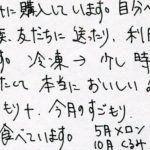 に購入しています。自分へ
友だちに送ったり、利
す。冷凍→少し時
たくて本当においしい
もり+、今月のすごもり
食べています。 5月メロン
10月くるみ